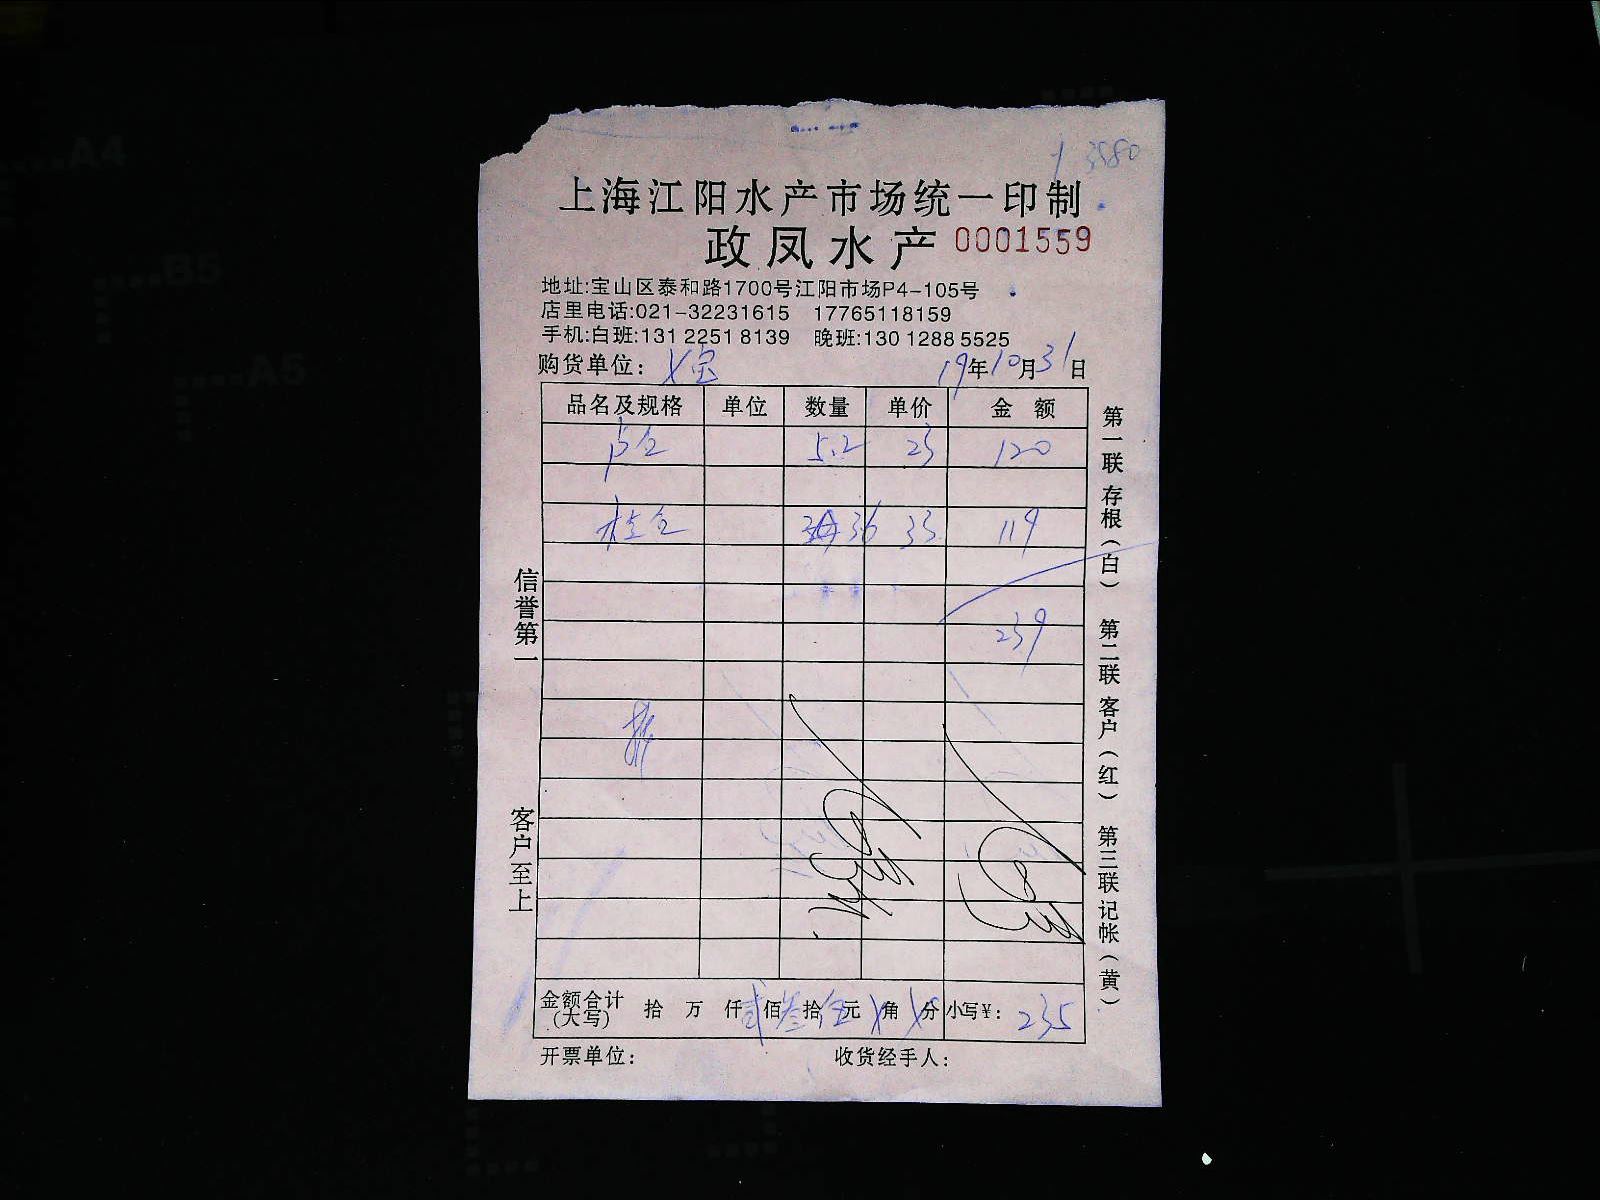 3580
上海江阳水产市场统一印制
政凤水产 0001559
地址:宝山区泰和路1700号江阳市场P4-105号
店里电话:021-32231615 17765118159
手机:白班:131 2251 8139 晚班:130 1288 5525
购货单位: 宝 19年10月31日
品名及规格 单位 数量 单价 金额
5.2 23 120
桂仝 36 33 119
239
金额合计(大写) 拾 万 仟贰佰叁拾伍元X角X分 小写¥: 235
开票单位: 收货经手人:
信誉第一
客户至上
第一联存根(白) 第二联客户(红) 第三联记帐(黄)
A4
B5
A5